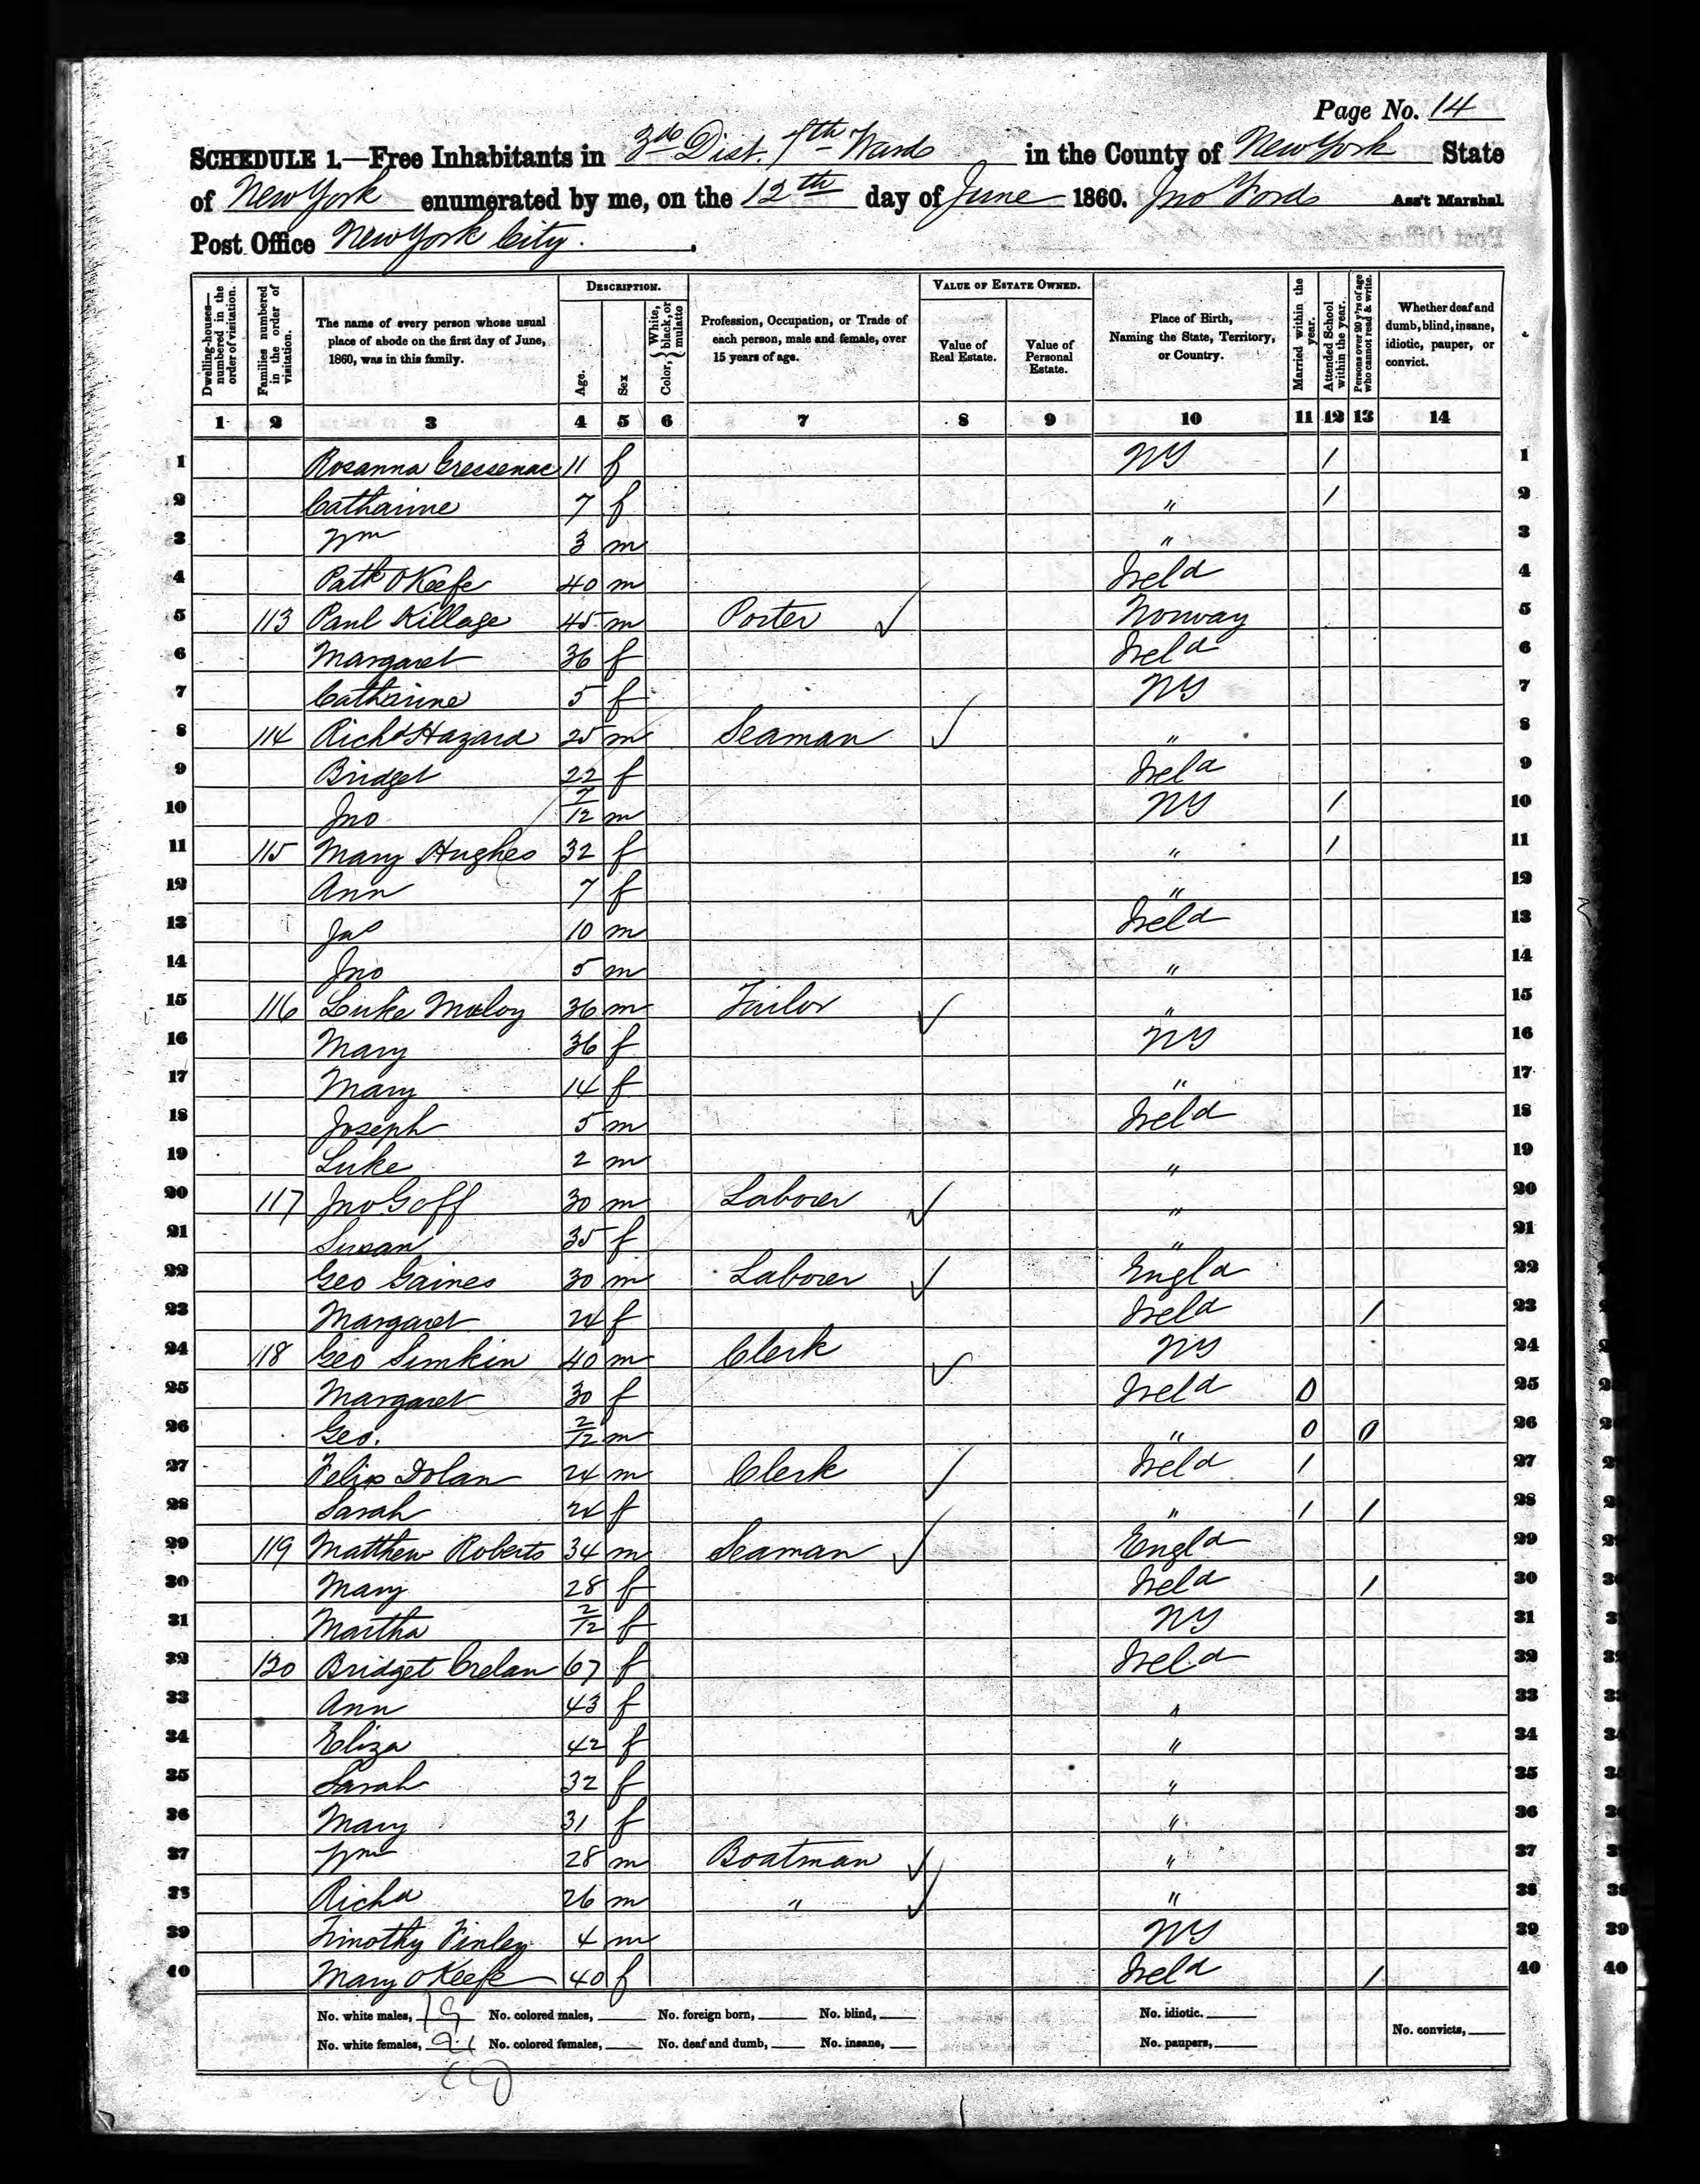 Page No. 14
SCHEDULE 1.—Free Inhabitants in 3d Dist. 7th Ward in the County of New York State
of New York enumerated by me, on the 12th day of June 1860. Jno Ford Ass't Marshal
Post Office New York City.
Dwelling-houses—numbered in the order of visitation.
Families numbered in the order of visitation.
The name of every person whose usual place of abode on the first day of June, 1860, was in this family.
DESCRIPTION.
Age.
Sex
Color, { White, black, or mulatto
Profession, Occupation, or Trade of each person, male and female, over 15 years of age.
VALUE OF ESTATE OWNED.
Value of Real Estate.
Value of Personal Estate.
Place of Birth, Naming the State, Territory, or Country.
Married within the year.
Attended School within the year.
Persons over 20 y'rs of age who cannot read & write.
Whether deaf and dumb, blind, insane, idiotic, pauper, or convict.
1 2 3 4 5 6 7 8 9 10 11 12 13 14
1 Rosanna 11 f NY / 1
2 Catharine 7 f " / 2
3 Wm 3 m " 3
4 Patk O Keefe 40 m Ireld 4
5 113 Paul Killage 45 m Porter ✓ Norway 5
6 Margaret 36 f Ireld 6
7 Catharine 5 f NY 7
8 114 Richd Hazard 25 m Seaman ✓ " 8
9 Bridget 22 f Ireld 9
10 Jno 7/12 m NY / 10
11 115 Mary Hughes 32 f " / 11
12 Ann 7 f " 12
13 Jas 10 m Ireld 13
14 Jno 5 m " 14
15 116 Luke 36 m Tailor ✓ " 15
16 Mary 36 f NY 16
17 Mary 14 f " 17
18 Joseph 5 m Ireld 18
19 Luke 2 m " 19
20 117 Jno Goff 30 m Laborer ✓ " 20
21 Susan 35 f " 21
22 Geo Gaines 30 m Laborer ✓ Engld 22
23 Margaret 24 f Ireld / 23
24 118 Geo Simkin 40 m Clerk ✓ NY 24
25 Margaret 30 f Ireld 0 25
26 Geo. 2/12 m " 0 0 26
27 Felix Dolan 24 m Clerk ✓ Ireld / 27
28 Sarah 24 f " / / 28
29 119 Matthew Roberts 34 m Seaman ✓ Engld 29
30 Mary 28 f Ireld / 30
31 Martha 2/12 f NY 31
32 120 Bridget Crelan 67 f Ireld 32
33 Ann 43 f " 33
34 Eliza 42 f " 34
35 Sarah 32 f " 35
36 Mary 31 f " 36
37 Wm 28 m Boatman ✓ " 37
38 Richd 26 m " ✓ " 38
39 Timothy Finley 4 m NY 39
40 Mary O Keefe 40 f Ireld / 40
No. white males, 19 No. colored males, No. foreign born, No. blind, No. idiotic.
No. white females, 21 No. colored females, No. deaf and dumb, No. insane, No. paupers, No. convicts,